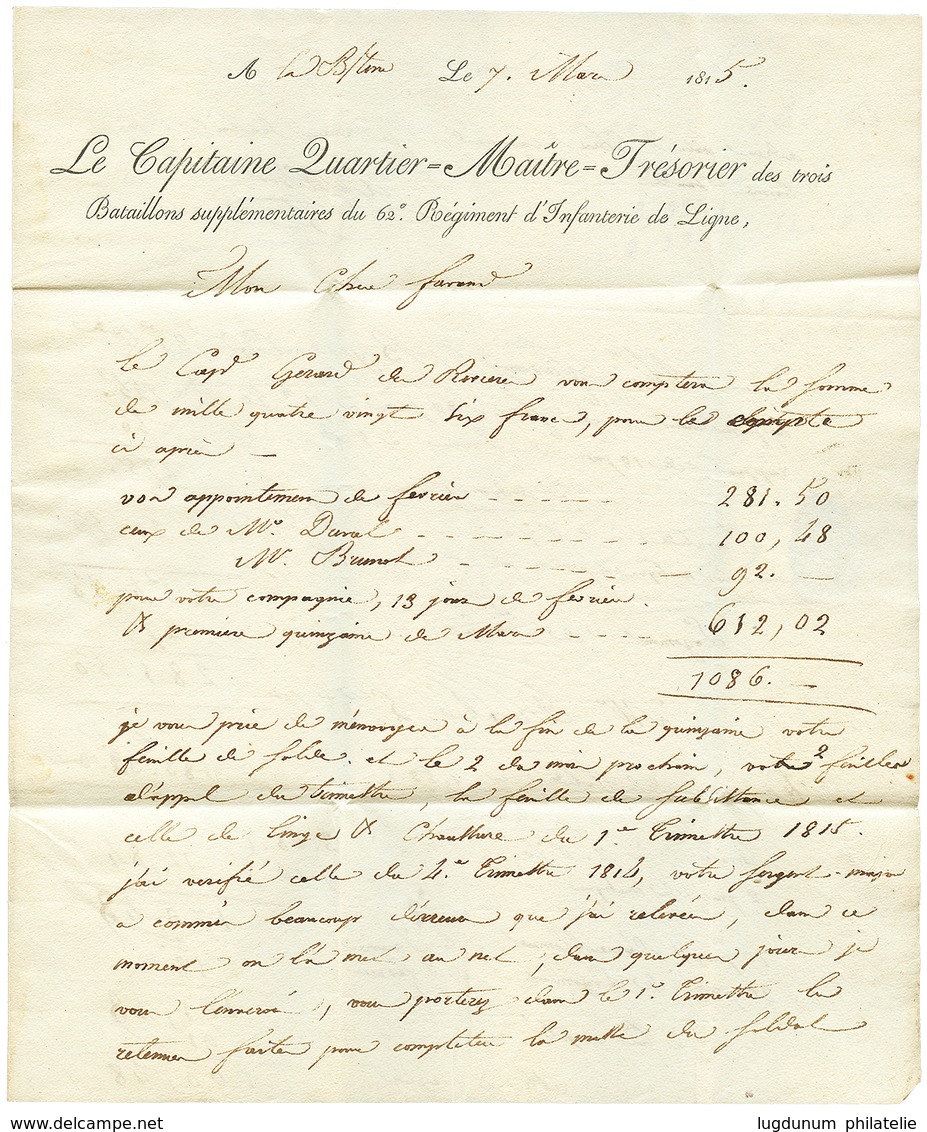 A la B/Terre Le 7. Mars 1815.
Le Capitaine Quartier=Maître=Trésorier des trois
Bataillons supplémentaires du 62e. Régiment d'Infanterie de Ligne,
Mon Cher
le Cape Gerard de Riviere vous comptera la somme
de mille quatre vingt six francs, pour le
ci après —
vos appointemens de fevrier - - - - - - 281. 50
ceux de Mr. Duval - - - - - - - - 100, 48
Mr. Brunot - - - - - - - 92. —
pour votre compagnie, 13 jours de fevrier.
& premiere quinzaine de Mars - - - - - 612, 02
1086. —
je vous prie de m'envoyer à la fin de la quinzaine votre
feuille de solde. et le 2 du mois prochain, votre feuilles
d'appel du trimestre, la feuille de subsistance et
celle de linge & Chaussure du 1er Trimestre 1815.
j'ai verifié celle du 4e. Trimestre 1814, votre sergent-major
a commis beaucoup d'erreurs que j'ai relevées, dans ce
moment on l'a met au net, dans quelques jours je
vous l'enverai, vous porterez dans le 1er. Trimestre la
retenues faites pour completer la masse du soldat
www.delcampe.net lugdunum philatelie